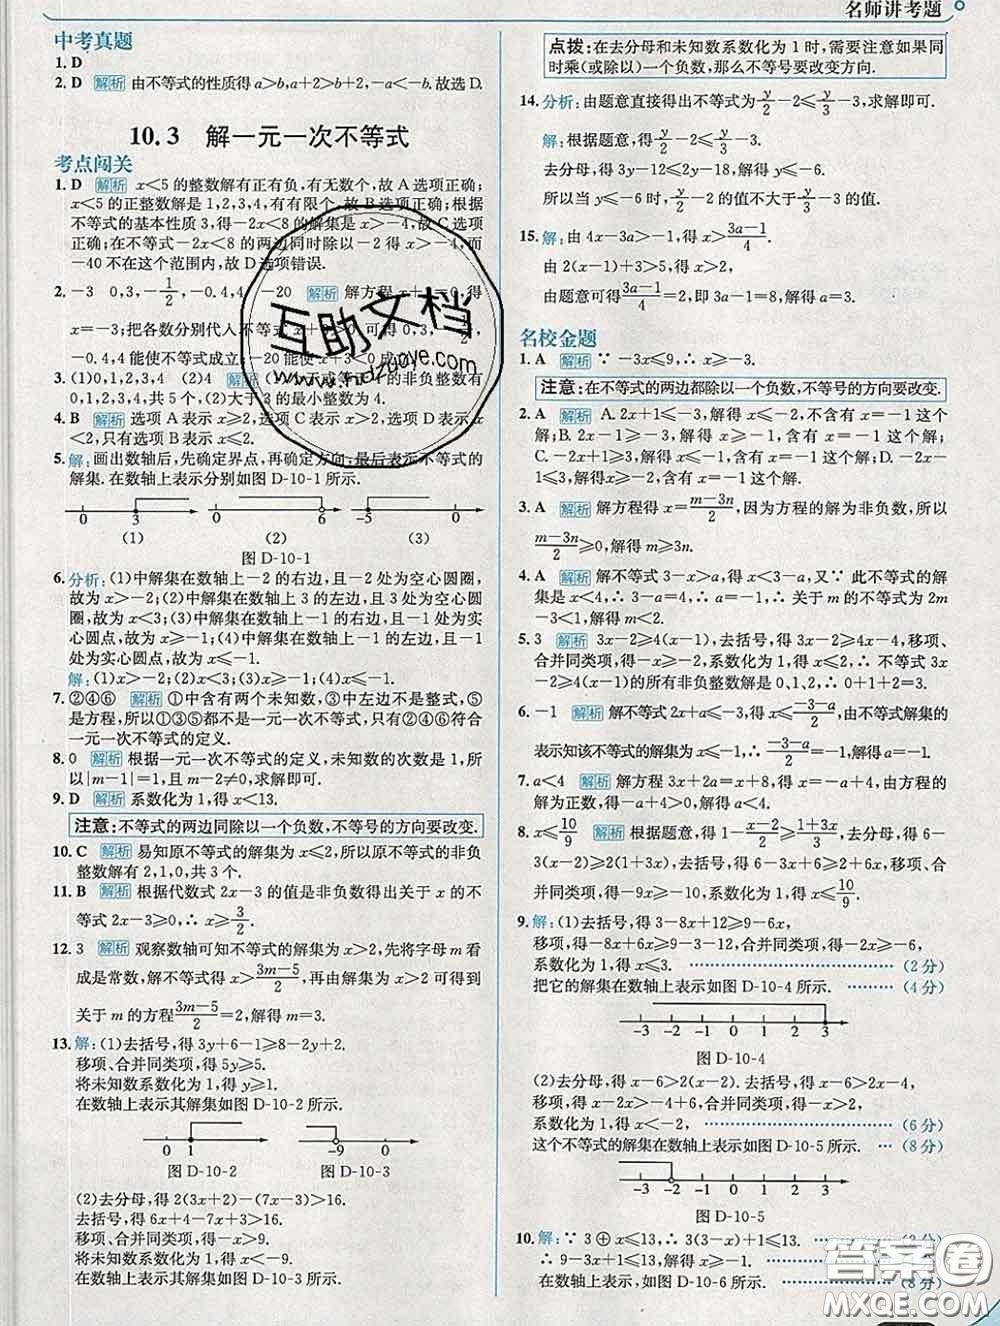 名师讲考题
中考真题
1. D
2. D 解析 由不等式的性质得a>b,a+2>b+2,-a<-b.故选D.
10.3 解一元一次不等式
考点闯关
1. D 解析 x<5的整数解有正有负,有无数个,故A选项正确;
x<5的正整数解是1,2,3,4,有有限个,故B选项正确;根据
不等式的基本性质3,得-2x<8的解集是x>-4,故C选项
正确;在不等式-2x<8的两边同时除以-2得x>-4,而
-40不在这个范围内,故D选项错误.
2. -3 0,3,-1/2,-0.4,4 -20 解析 解方程x+3=0,得
x=-3;把各数分别代人不等式x+3>0,可得0,3,-1/2,
-0.4,4能使不等式成立;-20能使x+3<0成立.
3. (1)0,1,2,3,4 (2)4 解析 (1)的非负整数有
0,1,2,3,4,共5个,(2)大于3的最小整数为4.
4. B 解析 选项A表示x≥2,选项C表示x>2,选项D表示x
<2,只有选项B表示x≤2.
5. 解:画出数轴后,先确定界点,再确定方向;最后表示不等式的
解集.在数轴上表示分别如图D-10-1所示.
0 3 0 6 -5 0
(1) (2) (3)
图D-10-1
6. 分析:(1)中解集在数轴上-2的右边,且-2处为空心圆圈,
故为x>-2;(2)中解集在数轴上3的左边,且3处为空心圆
圈,故为x<3;(3)中解集在数轴上-1的右边,且-1处为
实心圆点,故为x≥-1;(4)中解集在数轴上-1的左边,且
-1处为实心圆点,故为x≤-1.
解:(1)x>-2;(2)x<3;(3)x≥-1;(4)x≤-1.
7. ②④⑥ 解析 ①中含有两个未知数,③中左边不是整式,⑤
是方程,所以①③⑤都不是一元一次不等式,只有②④⑥符合
一元一次不等式的定义.
8. 0 解析 根据一元一次不等式的定义,未知数的次数是1,所
以|m-1|=1,且m-2≠0,求解即可.
9. D 解析 系数化为1,得x<13.
注意:不等式的两边同除以一个负数,不等号的方向要改变.
10. C 解析 易知原不等式的解集为x≤2,所以原不等式的非负
整数解有2,1,0,共3个.
11. B 解析 根据代数式2x-3的值是非负数得出关于x的不
等式2x-3≥0,∴x≥3/2.
12. 3 解析 观察数轴可知不等式的解集为x>2,先将字母m看
成是常数,解不等式得x>(3m-5)/2,再由解集为x>2可得到
关于m的方程(3m-5)/2=2,解得m=3.
13. 解:(1)去括号,得3y+6-1≥8-2y+2.
移项、合并同类项,得5y≥5.
将未知数系数化为1,得y≥1.
在数轴上表示其解集如图D-10-2所示.
0 1 -9 0
图D-10-2 图D-10-3
(2)去分母,得2(3x+2)-(7x-3)>16.
去括号,得6x+4-7x+3>16.
移项、合并同类项,得-x>9.
将未知数系数化为1,得x<-9.
在数轴上表示其解集如图D-10-3所示.
点拨:在去分母和未知数系数化为1时,需要注意如果同
时乘(或除以)一个负数,那么不等号要改变方向.
14. 分析:由题意直接得出不等式为y/2-2≤y/3-3,求解即可.
解:根据题意,得y/2-2≤y/3-3.
去分母,得3y-12≤2y-18,解得y≤-6.
所以当y≤-6时,y/2-2的值不大于y/3-3的值.
15. 解:由4x-3a>-1,得x>(3a-1)/4.
由2(x-1)+3>5,得x>2.
由题意可得(3a-1)/4=2,即3a-1=8,解得a=3.
名校金题
1. A 解析 ∵-3x≤9,∴x≥-3.
注意:在不等式的两边都除以一个负数,不等号的方向要改变.
2. A 解析 A.2x+1≤-3,解得x≤-2,不含有x=-1这个
解;B.2x-1≥-3,解得x≥-1,含有x=-1这个解;
C.-2x+1≥3,解得x≤-1,含有x=-1这个解;D.-2x-1
≤3,解得x≥-2,含有x=-1这个解.
3. A 解析 解方程得x=(m-3n)/2,因为方程的解为非负数,所以
(m-3n)/2≥0,解得m≥3n.
4. A 解析 解不等式3-x>a,得x<3-a,又∵此不等式的解
集是x<4,∴3-a=4,∴a=-1,∴关于m的不等式为2m
-3<1,解得m<2.
5. 3 解析 3x-2≥4(x-1),去括号,得3x-2≥4x-4,移项、
合并同类项,得-x≥-2,系数化为1,得x≤2,∴不等式3x
-2≥4(x-1)的所有非负整数解是0,1,2,∴0+1+2=3.
6. -1 解析 解不等式2x+a≤-3,得x≤(-3-a)/2,由不等式解集的
表示知该不等式的解集为x≤-1,∴(-3-a)/2=-1,解得a=-1.
7. a<4 解析 解方程3x+2a=x+8,得x=-a+4,由方程的
解为正数,得-a+4>0,解得a<4.
8. x≤10/9 解析 根据题意,得1-(x-2)/2≥(1+3x)/3,去分母,得6-
3(x-2)≥2(1+3x),去括号,得6-3x+6≥2+6x,移项、合并同
类项,得-9x≥-10,系数化为1,得x≤10/9.
9. 解:(1)去括号,得3-8x+12≥9-6x,
移项,得-8x+6x≥9-3-12,合并同类项,得-2x≥-6,
系数化为1,得x≤3. (2分)
把它的解集在数轴上表示如图D-10-4所示. (4分)
-3 -2 -1 0 1 2 3
图D-10-4
(2)去分母,得x-6>2(x-2).去括号,得x-6>2x-4,
移项,得x-2x>-4+6,合并同类项,得-x>2,
系数化为1,得x<-2. (6分)
这个不等式的解集在数轴上表示如图D-10-5所示. (8分)
-3 -2 -1 0 1 2 3
图D-10-5
10. 解:∵3⊕x≤13,∴3(3-x)+1≤13.
∴9-3x+1≤13,解得x≥-1.
在数轴上表示如图D-10-6所示. (8分)
互助文档
www.hdzuoye.com
答案圈
MXQE.COM